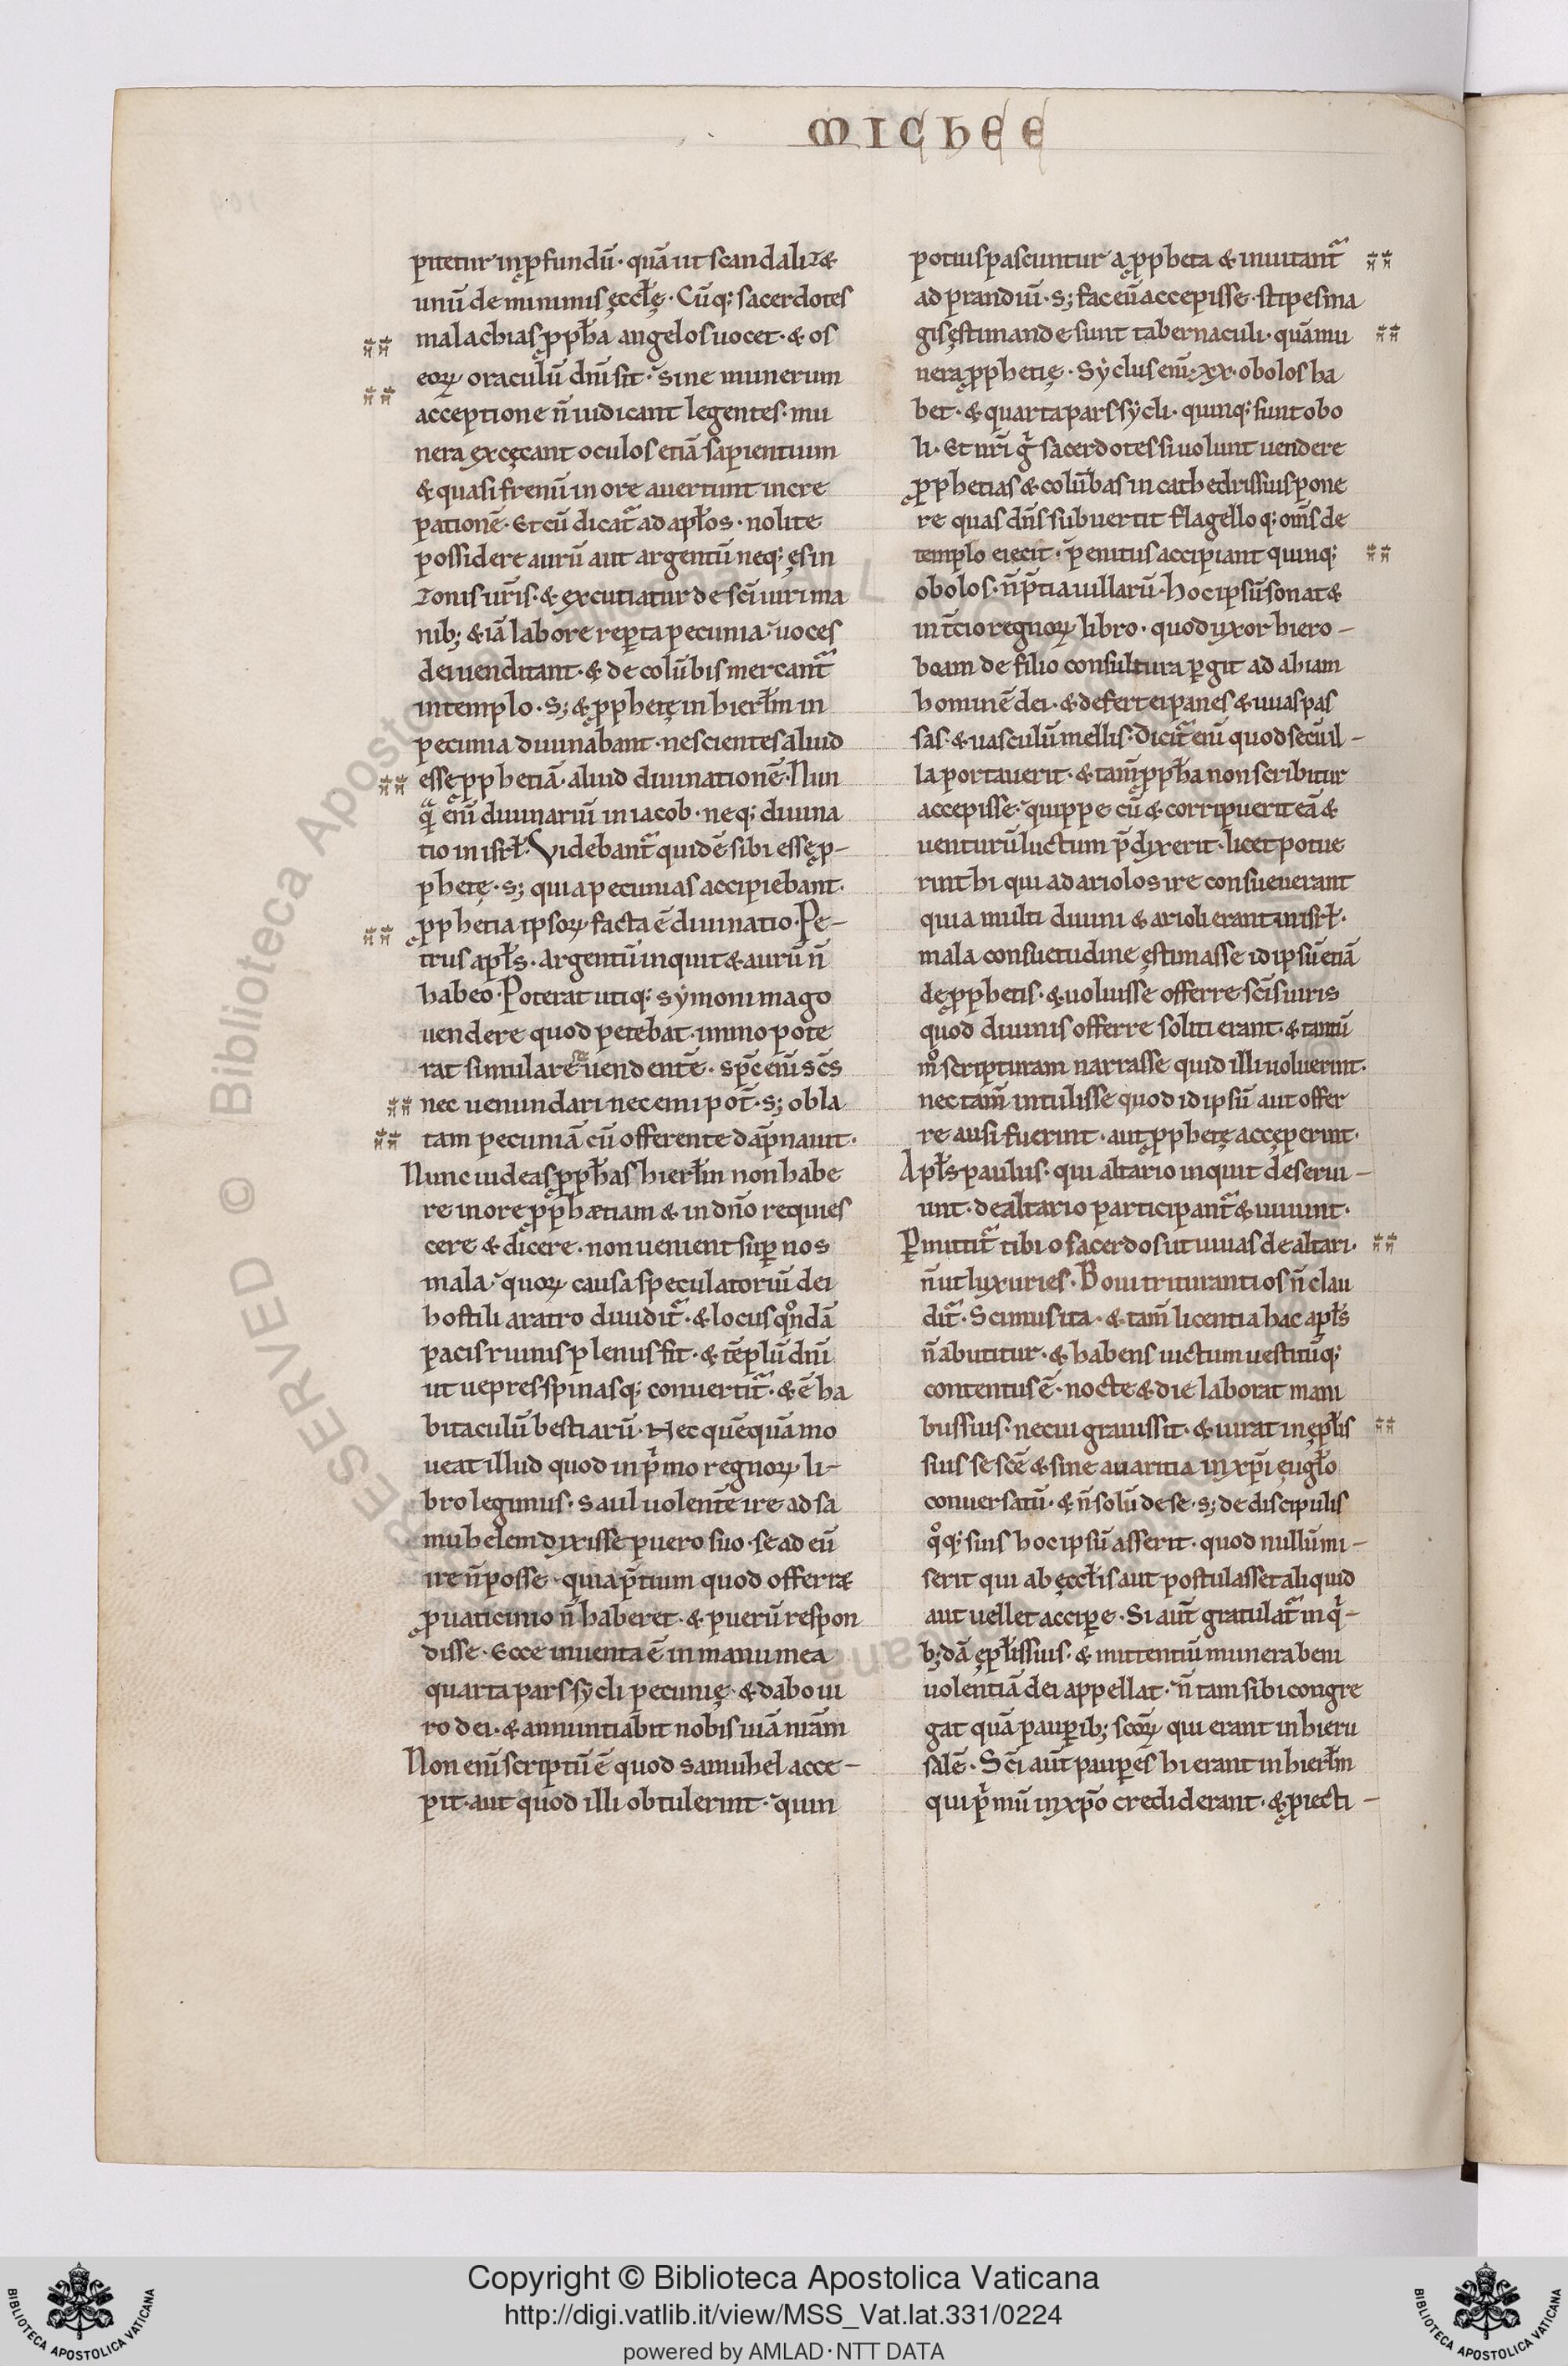 MICHEE
pitetur in ꝓfundū· quā ut scandalizæ
unū de minimis ęccłę· Cūq; sacerdotes
malachias ꝓpħa angelos uocet· & os
eoꝝ oraculū dn̄i sit· sine munerum
acceptione n̄ iudicant legentes· mu
nera excęcant oculos etiā sapientium
& quasi frenū in ore auertunt incre
pationē· Et cū dicat̃ ad apłos· nolite
possidere aurū aut argentū neq; ęs in
zonis ur̄is· & excutiatur de sc̄i uiri ma
nib; & iā labore reꝑta pecunia· uoces
dei uenditant· & de colūbis mercant̃
in templo· s; & ꝓphetę in hierłm in
pecunia diuinabant· nescientes aliud
esse ꝓphetiā· aliud diuinationē· Nun
qͣ enī diuinariū in iacob· neq; diuina
tio in isrł· Videbant̃ quidē sibi esse ꝓ-
phetę· s; quia pecunias accipiebant·
ꝓphetia ipsoꝝ facta ē diuinatio· Pe-
trus apłs· Argentū inquit & aurū n̄
habeo· Poterat utiq; symoni mago
uendere quod petebat· immo pote
rat simulare uendentē· sp̄c enī sc̄s
nec uenundari nec emi pot̄· s; obla
tam pecuniā cū offerente dāpnauit·
Nunc iudeas ꝓpħas hierłm non habe
re in ore ꝓphætiam & in dn̄o requies
cere & dicere· non uenient suꝑ nos
mala· quoꝝ causa speculatoriū dei
hostili aratro diuidit̃· & locus qͦndā
pacis ruinis plenus fit· & tēplū dn̄i
ut uepres spinasq; conuertit̃· & ē ha
bitaculū bestiarū· Nec quēquā mo
ueat illud quod in pⁱmo regnoꝝ li-
bro legimus· Saul uolentē ire ad sa
muhelem dixisse puero suo· se ad eū
ire n̄ posse· quia p̄tium quod offerræ
ꝓ uaticinio n̄ haberet· & puerū respon
disse· Ecce inuenta ē in manu mea
quarta pars sycli pecunię· & dabo ui
ro dei· & annuntiabit nobis uiā nr̄am
Non enī scriptū ē quod samuhel acce-
pit· aut quod illi obtulerint· quin
potius pascuntur a ꝓpheta & inuitant̃
ad prandiū· s; fac eū accepisse· stipes ma
gis ęstimandę sunt tabernaculi· quā mu
nera ꝓphetię· Syclus enī· xx· obolos ha
bet· & quarta pars sycli· quinq; sunt obo
li· Et nr̄i gͥ sacerdotes si uolunt uendere
ꝓphetias & colūbas in cathedris suis pone
re quas dn̄s subuertit flagello q; om̄s de
templo eiecit· penitus accipiant quinq;
obolos· n̄ p̄tia uillarū· Hoc ipsū sonat &
in t̄cio regnoꝝ libro· quod uxor hiero-
boam de filio consultura ꝑgit ad abiam
hominē dei· & defert ei panes & uuas pas
sas· & uasculū mellis· Dicit̃ enī quod secū il-
la portauerit· & tam̄ ꝓpħa non scribitur
accepisse· quippe cū & corripuerit eā &
uenturū luctum p̄dixerit· licet potue
rint hi qui ad ariolos ire consueuerant
quia multi diuini & arioli erant in isrł·
mala consuetudine ęstimasse id ipsū etiā
de ꝓphetis· & uoluisse offerre sc̄is uiris
quod diuinis offerre soliti erant· & tantū
mͦ scripturam narrasse quid illi uoluerint·
nec tam̄ intulisse quod id ipsū aut offer
re ausi fuerint· aut ꝓphetę accęperint·
Apłs paulus· qui altario inquit deserui-
unt· de altario participant̃ & uiuunt·
Ꝑmittit̃ tibi o sacerdos ut uiuas de altari·
n̄ ut luxuries· Boui trituranti os n̄ clau
dit̃· Scimus ita· & tam̄ licentia hac apłs
n̄ abutitur· & habens uictum uestitūq;
contentus ē· nocte & die laborat mani
bus suis· ne cui grauis sit· & iurat in ępłis
suis se sc̄e & sine auaritia in xp̄i eugło
conuersatū· & n̄ solū de se· s; de discipulis
qͦq; suis hoc ipsū asserit· quod nullū mi-
serit qui ab ęccłis aut postulasset aliquid
aut uellet acciꝑe· Si aut̄ gratulat̃ in qⁱ-
b;dā ępłis suis· & mittentiū munera beni
uolentiā dei appellat· n̄ tam sibi congre
gat quā pauꝑib; sc̄oꝝ qui erant in hieru
salē· Sc̄i aut̄ pauꝑes hi erant in hierłm
qui pⁱmū in xp̄o crediderant· & ꝓiecti-
Copyright © Biblioteca Apostolica Vaticana
http://digi.vatlib.it/view/MSS_Vat.lat.331/0224
powered by AMLAD·NTT DATA
BIBLIOTECA APOSTOLICA VATICANA
BIBLIOTECA APOSTOLICA VATICANA